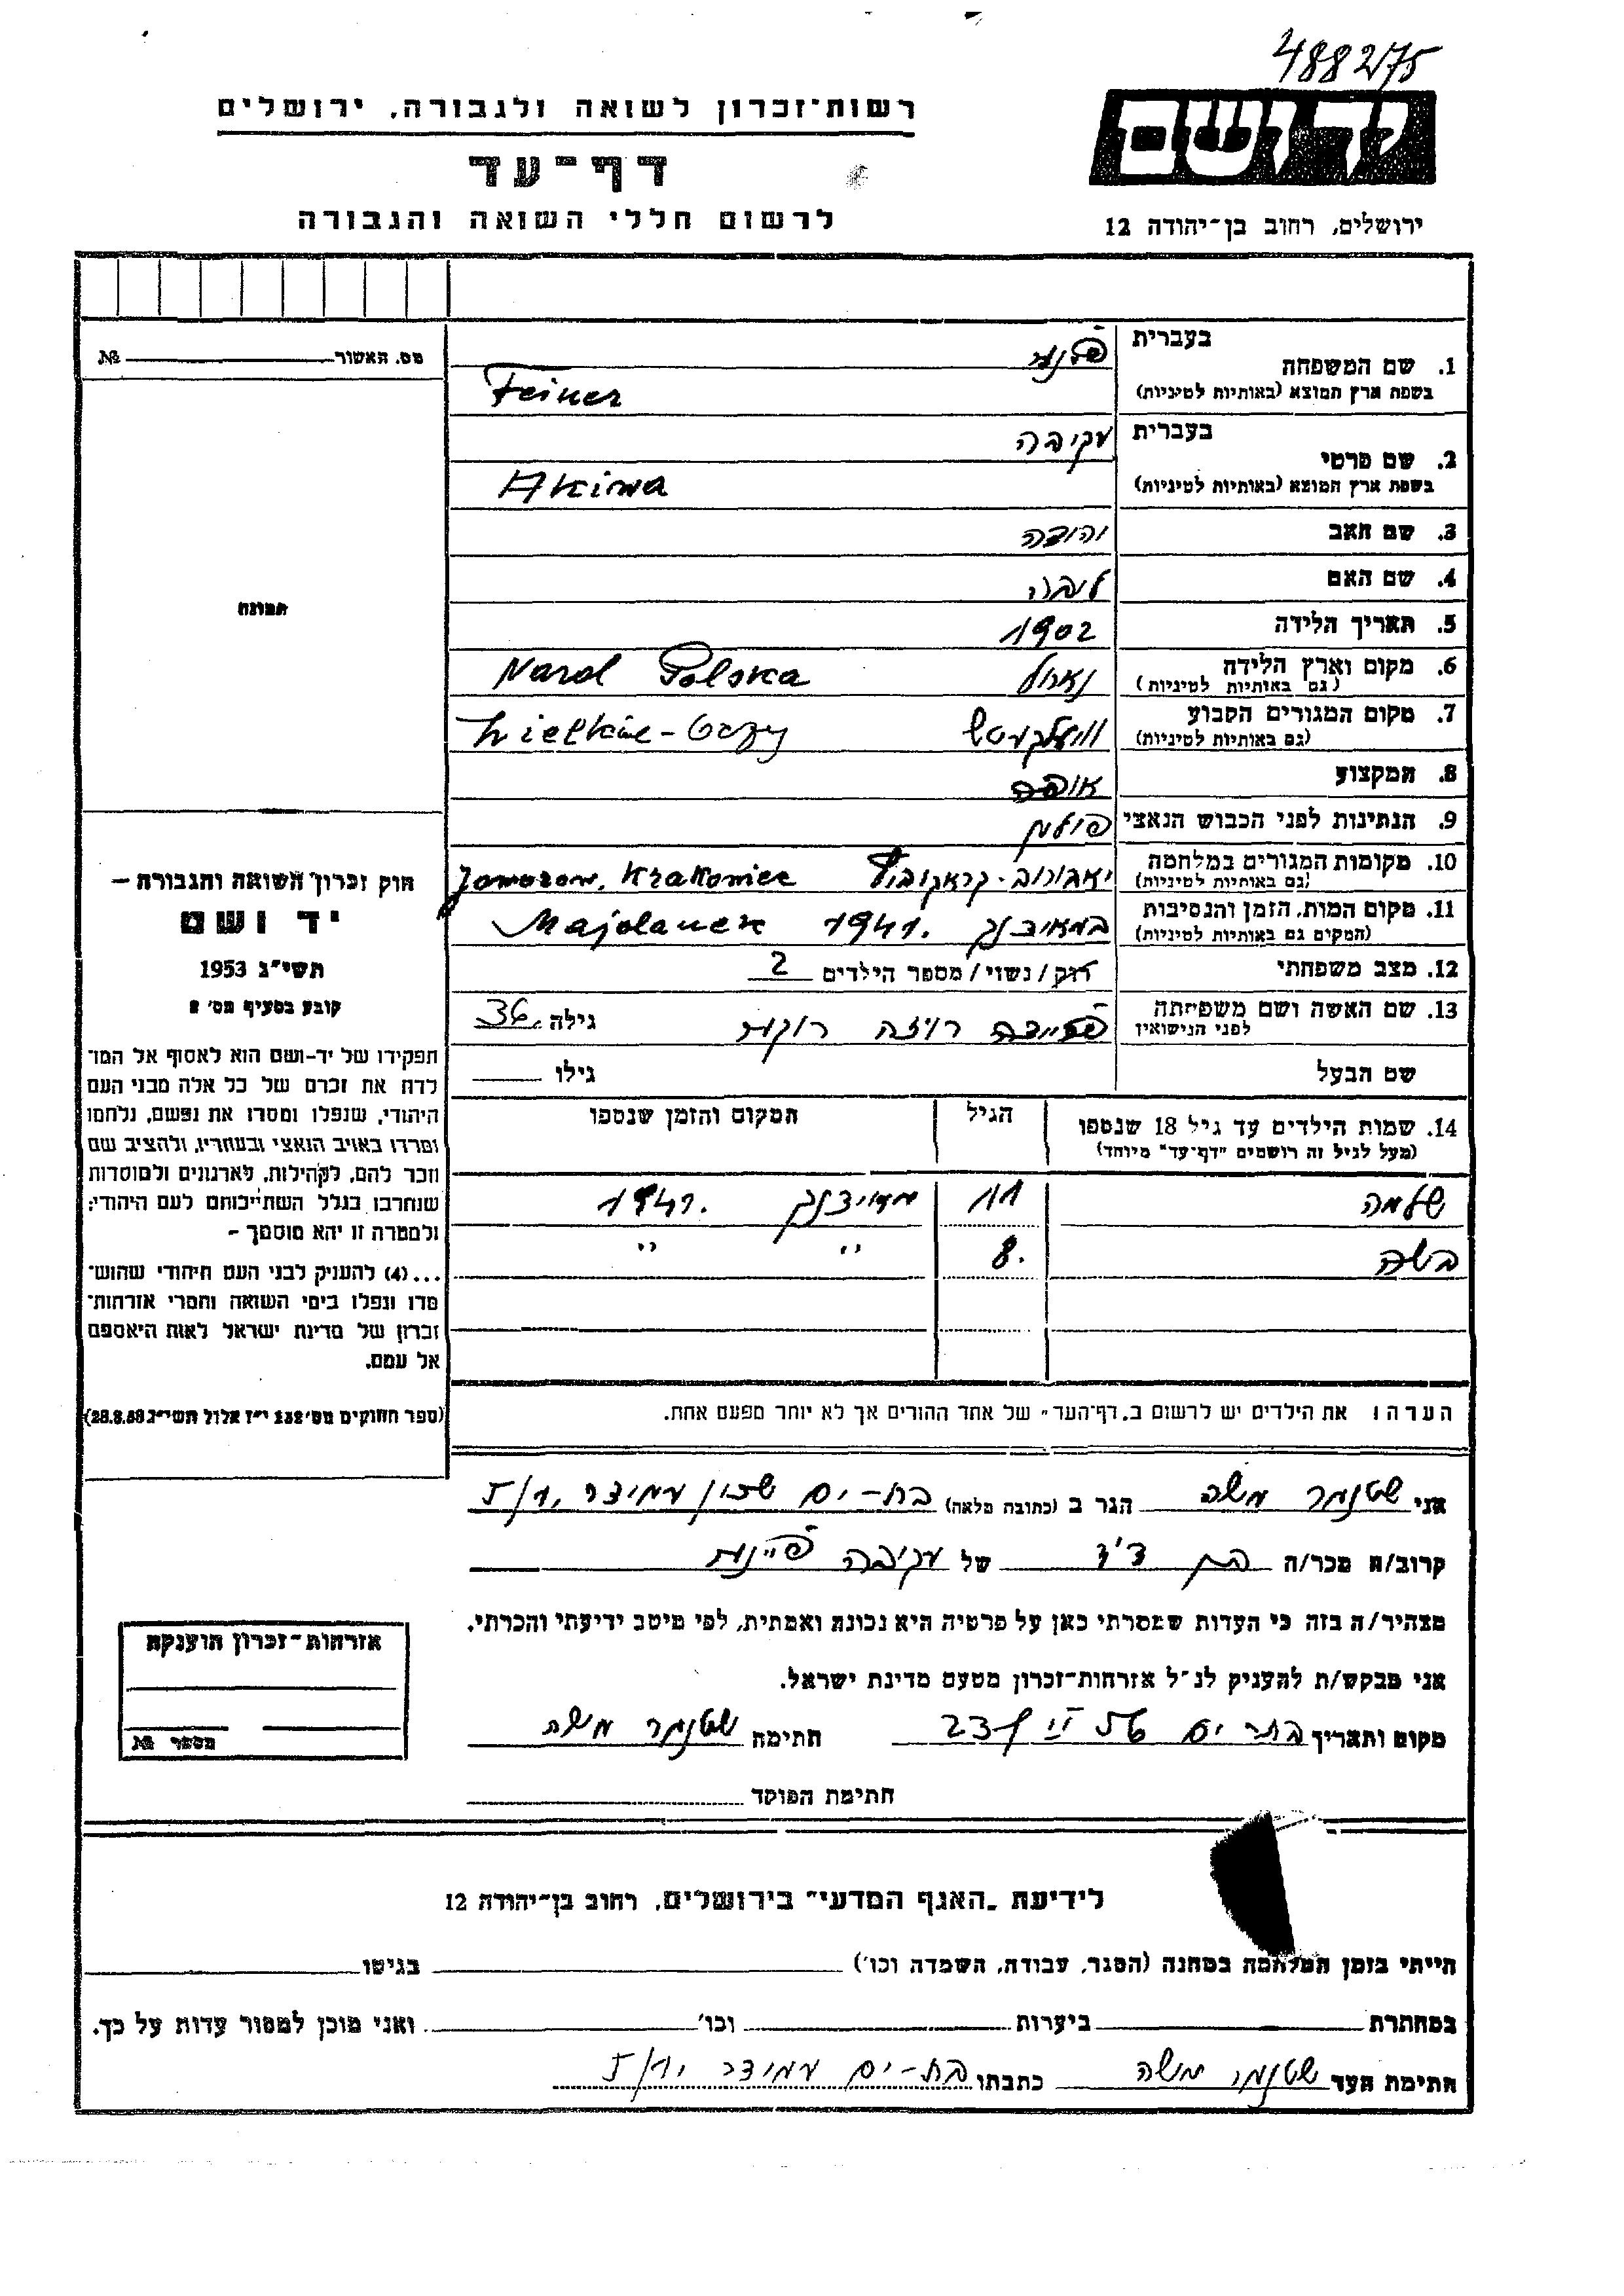 488275
יד ושם
רשות־זכרון לשואה ולגבורה, ירושלים
דף־עד
לרשום חללי השואה והגבורה
ירושלים, רחוב בן־יהודה 12
מס. האשור № 
תמונה
חוק זכרון השואה והגבורה –
יד ושם
תשי"ג 1953
קובע בסעיף מס' 2
תפקידו של יד-ושם הוא לאסוף אל המו־
לדת את זכרם של כל אלה מבני העם
היהודי, שנפלו ומסרו את נפשם, נלחמו
ומרדו באויב הנאצי ובעוזריו, ולהציב שם
וזכר להם, לקהילות, לארגונים ולמוסדות
שנחרבו בגלל השתייכותם לעם היהודי;
ולמטרה זו יהא מוסמך –
...(4) להעניק לבני העם היהודי שהוש־
מדו ונפלו בימי השואה והמרי אזרחות־
זכרון של מדינת ישראל לאות היאספם
אל עמם.
(ספר החוקים מס' 132 י"ז אלול תשי"ג 28.8.53)
בעברית
1. שם המשפחה
בשפת ארץ המוצא (באותיות לטיניות) Feiner
בעברית עקיבה
2. שם פרטי
בשפת ארץ המוצא (באותיות לטיניות) Akiwa
3. שם האב יהודה
4. שם האם ליבה
5. תאריך הלידה 1902
6. מקום וארץ הלידה נארול Narol Polska
(גם באותיות לטיניות)
7. מקום המגורים הקבוע Wielkie-Oczy
(גם באותיות לטיניות)
8. המקצוע אופה
9. הנתינות לפני הכבוש הנאצי פולנית
10. מקומות המגורים במלחמה יאבורוב-קראקוביץ Jaworow, Krakowiec
(גם באותיות לטיניות)
11. מקום המות, הזמן והנסיבות במאידנק 1941. Majdanek
(המקום גם באותיות לטיניות)
12. מצב משפחתי רוק/נשוי/ מספר הילדים 2
13. שם האשה ושם משפחתה רויזה רוקח גילה 36
לפני הנישואין
שם הבעל גילו
14. שמות הילדים עד גיל 18 שנספו הגיל המקום והזמן שנספו
(מעל לגיל זה רושמים "דף-עד" מיוחד)
שלמה 11 מאידנק 1941.
בשה 8. " "
הערה: את הילדים יש לרשום ב„דף־העד" של אחד ההורים אך לא יותר מפעם אחת.
אני שטנמר משה הגר ב (כתובה מלאה) בת-ים שכון עמידר
קרוב/ה מכר/ה בן דוד של עקיבה פיינר
מצהיר/ה בזה כי העדות שמסרתי כאן על פרטיה היא נכונה ואמתית, לפי מיטב ידיעתי והכרתי.
אני מבקש/ת להעניק לנ"ל אזרחות־זכרון מטעם מדינת ישראל.
מקום ותאריך בת ים חתימה שטנמר משה
חתימת הפוקד
אזרחות־זכרון הוענקה
מספר №
לידיעת „האגף המדעי" בירושלים, רחוב בן־יהודה 12
הייתי בזמן המלחמה במחנה (הסגר, עבודה, השמדה וכו') בגיטו
במחתרת ביערות וכו' ואני מוכן למסור עדות על כך.
חתימת העד שטנמר משה כתבתו בת-ים עמידר